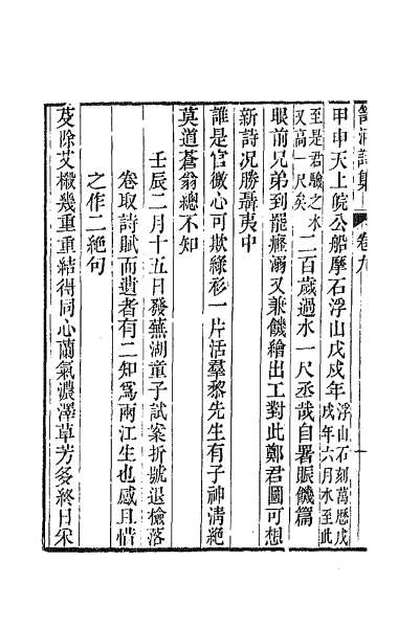 笥河詩集 卷九
甲申天上皖公船摩石浮山戊戌年浮山石刻萬歷戊戌年六月水至此
至是君驗之水又高一尺矣二百歲過水一尺丞哉自署賑饑篇
眼前兄弟到罷癃溺又兼饑繪出工對此鄭君圖可想
新詩況勝聶夷中
誰是官微心可欺綠衫一片活羣黎先生有子神清絶
莫道蒼翁總不知
壬辰二月十五日發蕪湖童子試案折號退檢落
卷取詩賦而遺者有二知為兩江生也感且惜
之作二絶句
芟除艾樧幾重重結得同心蘭氣濃澤草芳多終日采